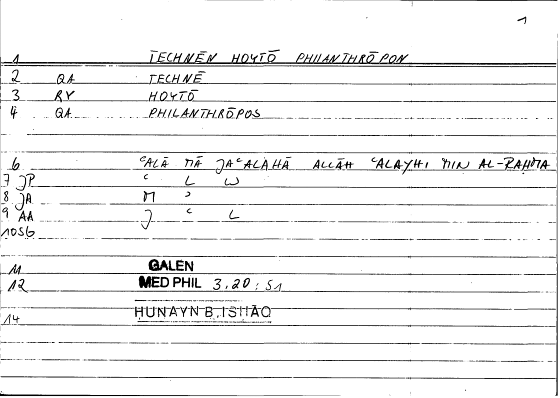 1
1 TECHNĒN HOYTŌ PHILANTHRŌPON
2 QA TECHNĒ
3 RY HOYTŌ
4 QA PHILANTHRŌPOS
6 ʿALĀ MĀ JAʿALAHĀ ALLĀH ʿALAYHI MIN AL-RAḤMA
7 JP ʿ L W
8 JA M ʾ
9 AA J ʿ L
10SG
11 GALEN
12 MED PHIL 3.20:51
14 HUNAYN B. ISHĀQ